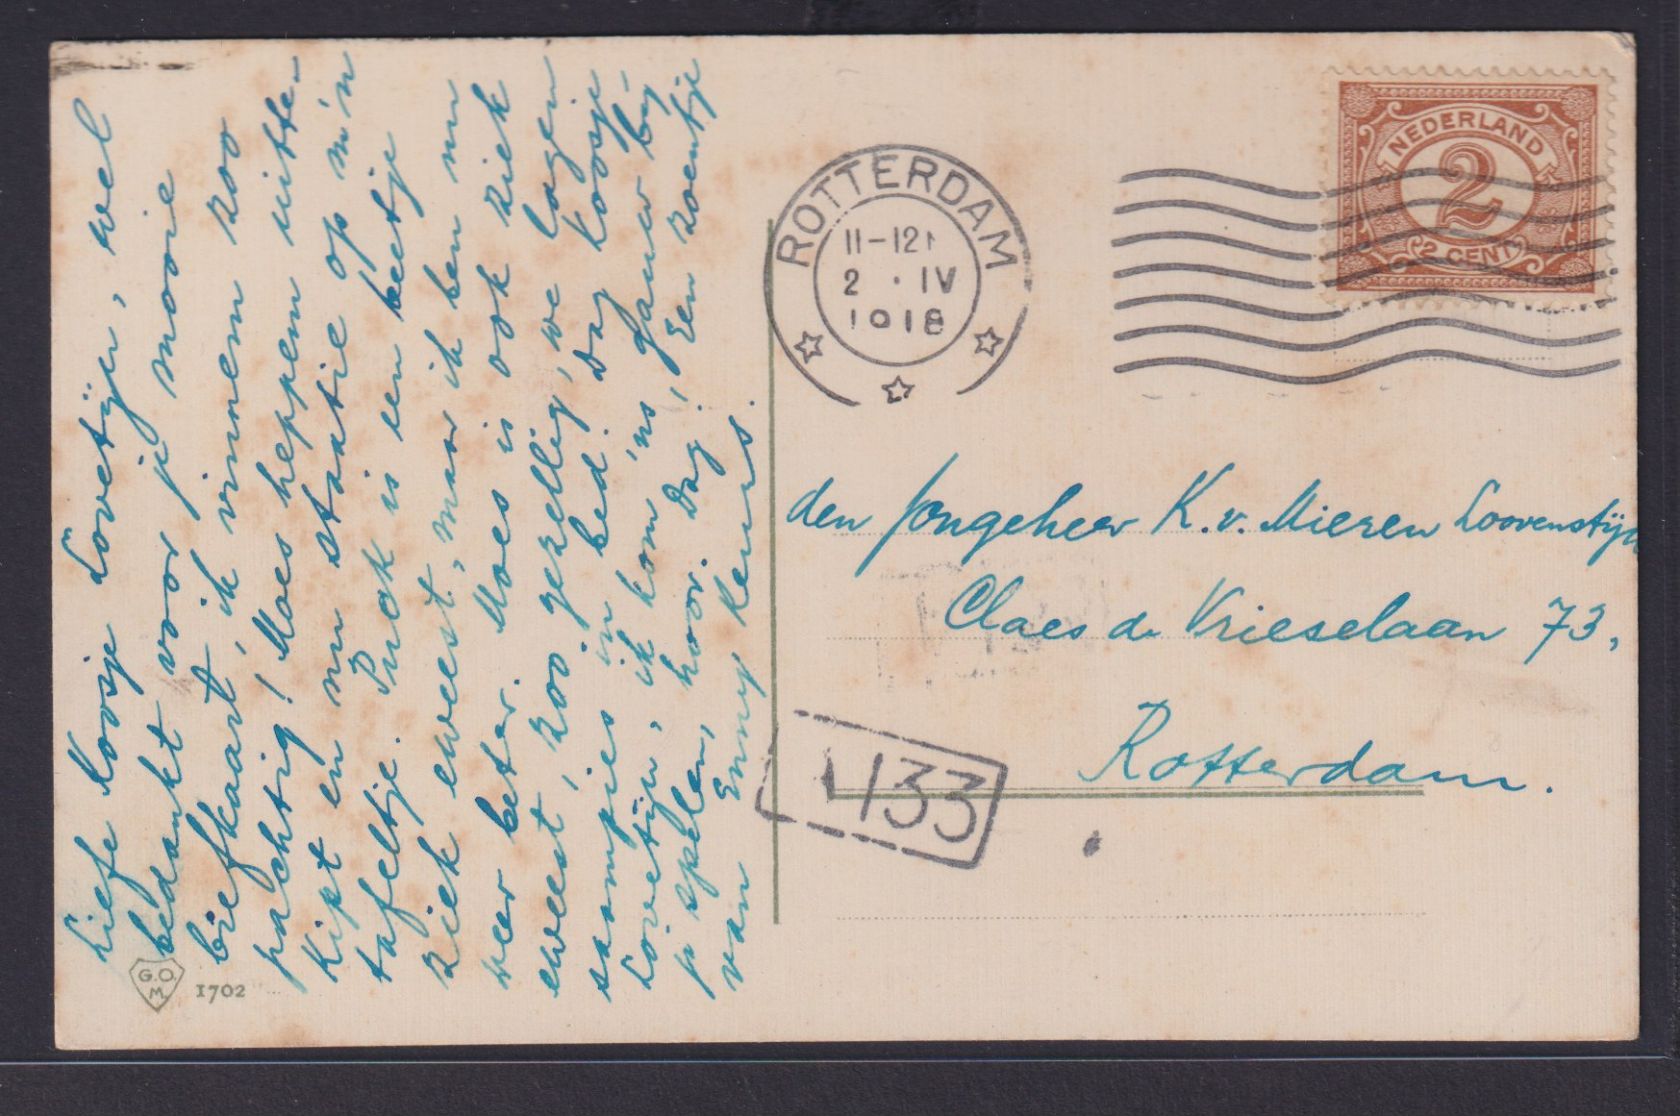 Liefe Koosje Lovetije, wel
bedankt voor je mooie
biefkaart, ik vinnem zoo
pachtig! Moes heppem uitte-
kipt en nu staatie op m'n
tafeltje. Puck is een beetje
ziek eweest, maar ik ben nu
weer beter. Moes is ook ziek
eweest, zoo gezellig, we lagen
saampies in bed. Dag Koosje
Lovetije, ik kom 'ns gauw bij
je spelen, hoor. Dag! Een zoentje
van Enny Keus.
G.O.M
1702
ROTTERDAM
11-12
2 · IV
1918
NEDERLAND
2
2 CENT
den Jongeheer K. v. Mieren Loovenstijn
Claes de Vrieselaan 73,
Rotterdam.
133